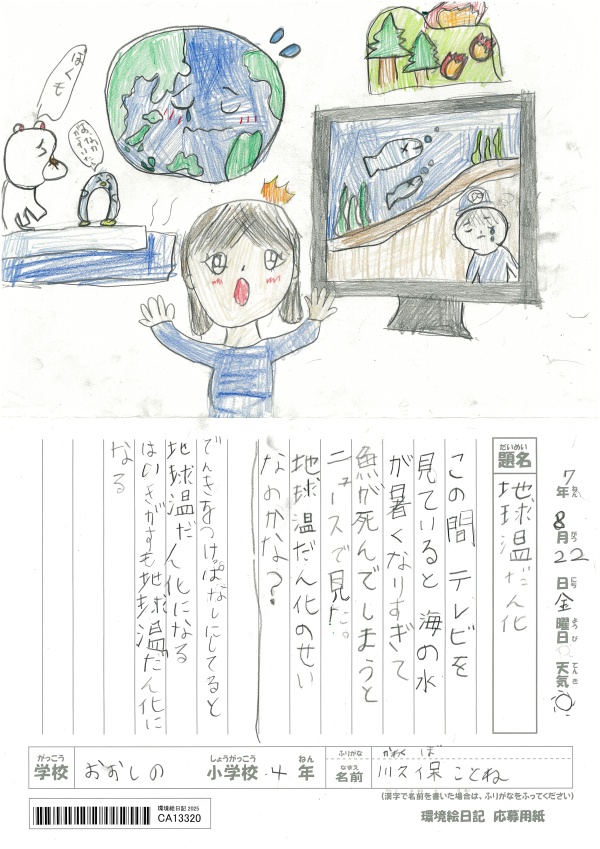 ぼくも
おなか
がすいた
7年 8月 22日 金曜日 天気
ねん がつ にち ようび てんき
だいめい
題名
地球温だん化
この間 テレビを
見ていると 海の水
が暑くなりすぎて
魚が死んでしまうと
ニュースで見た。
地球温だん化のせい
なのかな?
でんきをつけっぱなしにしてると
地球温だん化になる
はいきがすも地球温だん化に
なる
がっこう しょうがっこう ねん
学校 おおしの 小学校 4年
ふりがな かわくぼ
なまえ
名前 川久保 ことね
(漢字で名前を書いた場合は、ふりがなをふってください)
環境絵日記 2025
CA13320
環境絵日記 応募用紙